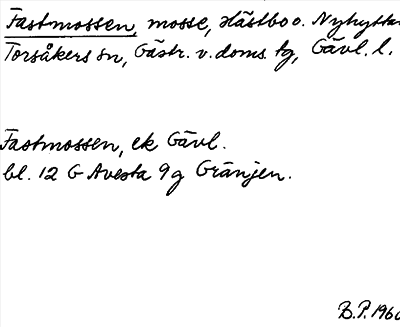 Fastmossen, mosse, Hästbo o. Nyhyttan
Torsåkers sn, Gästr. v. doms. tg, Gävl. l.
Fastmossen, ek Gävl.
bl. 12 G Avesta 9 g Gränjen.
B.P. 1960